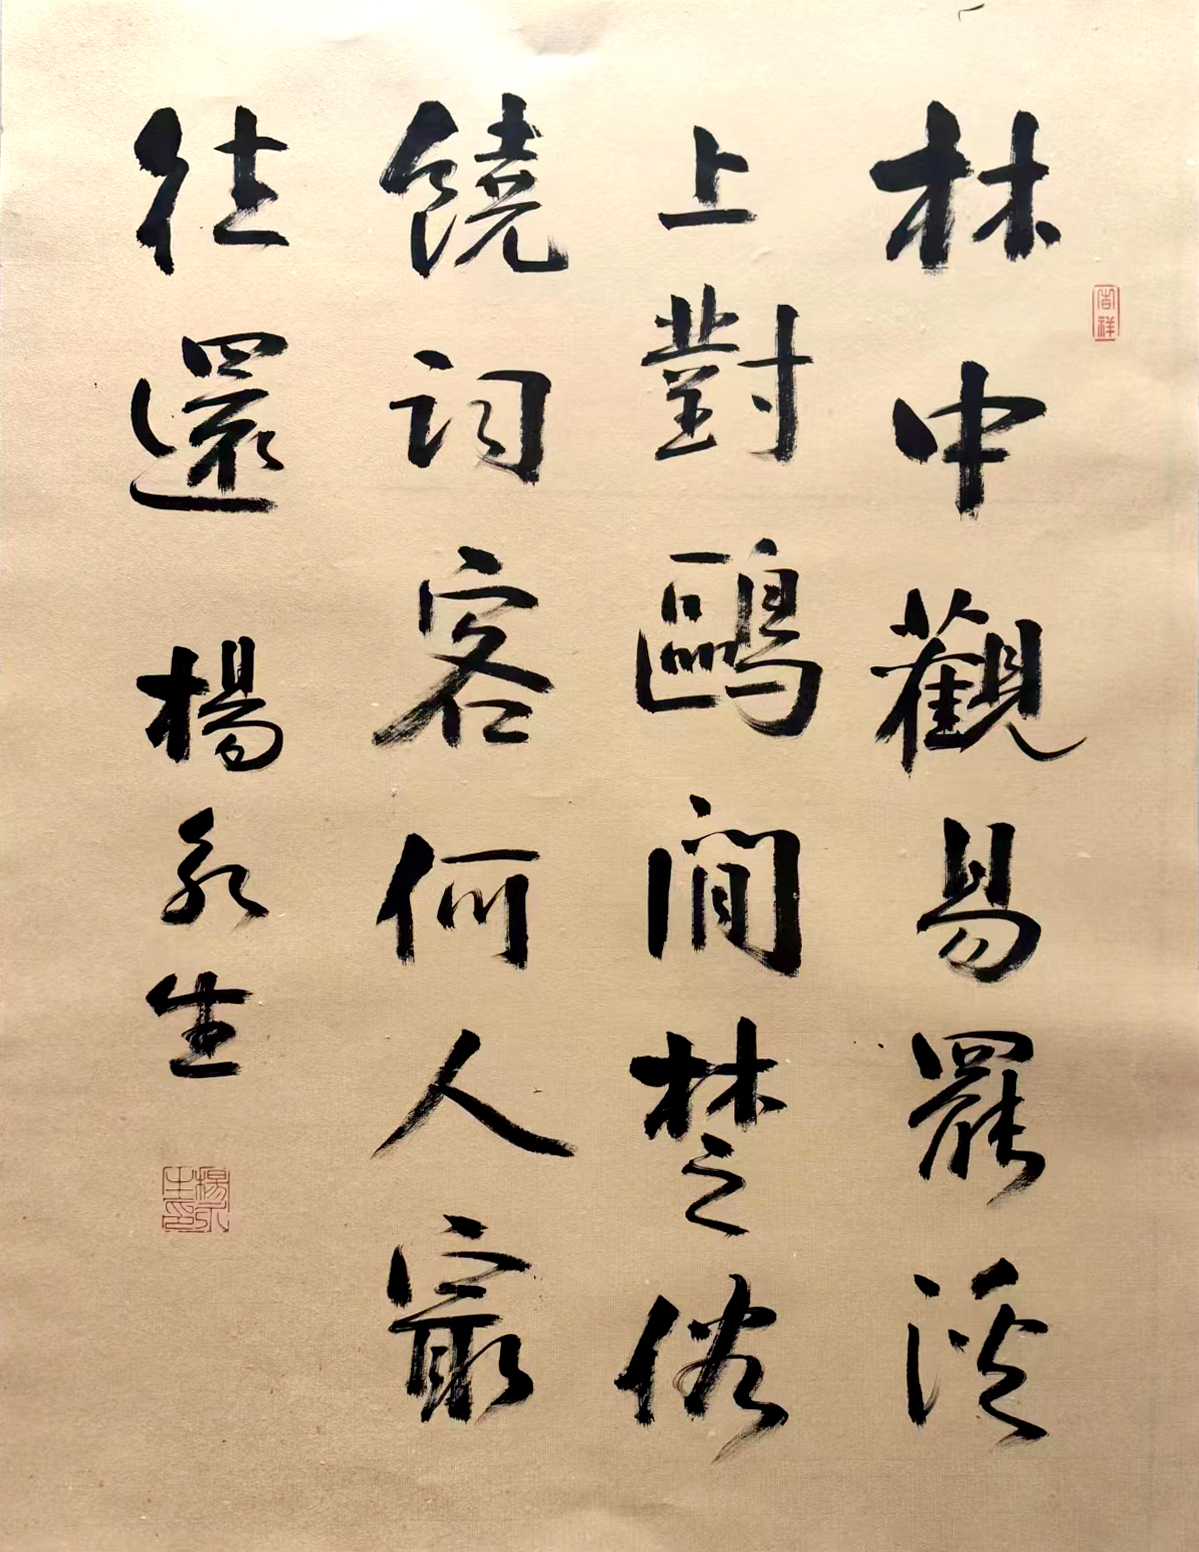 林中觀易罷溪
上對鷗閒楚俗
饒詞客何人寂
往還 楊永生
吉祥
楊永生印